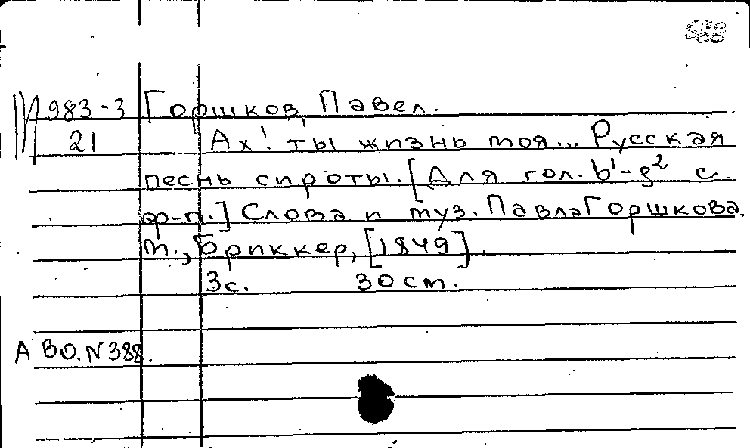 М983-3 Горшков, Павел.
21 Ах! ты жизнь моя... Русская
песнь сироты. [Для гол. b¹-g² с
ф-п.] Слова и муз. Павла Горшкова.
М., Бриккер, [1849].
3с. 30 см.
А ВО. N 388.